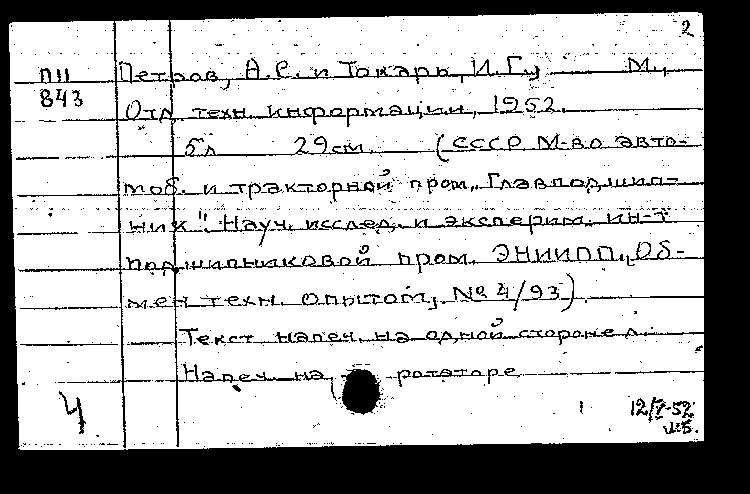 2
ПII Петров, А.С. и Токарь, И.Г., М.,
843 Отд. техн. информации, 1952.
5 л 29 см. (СССР М-во авто-
моб. и тракторной пром. „Главподшип-
ник". Науч. исслед. и эксперим. ин-т
подшипниковой пром. ЭНИИПП. „Об-
мен техн. опытом", № 4/93).
Текст напеч. на одной стороне л.
Напеч. на ротаторе
4 1 12/I-52